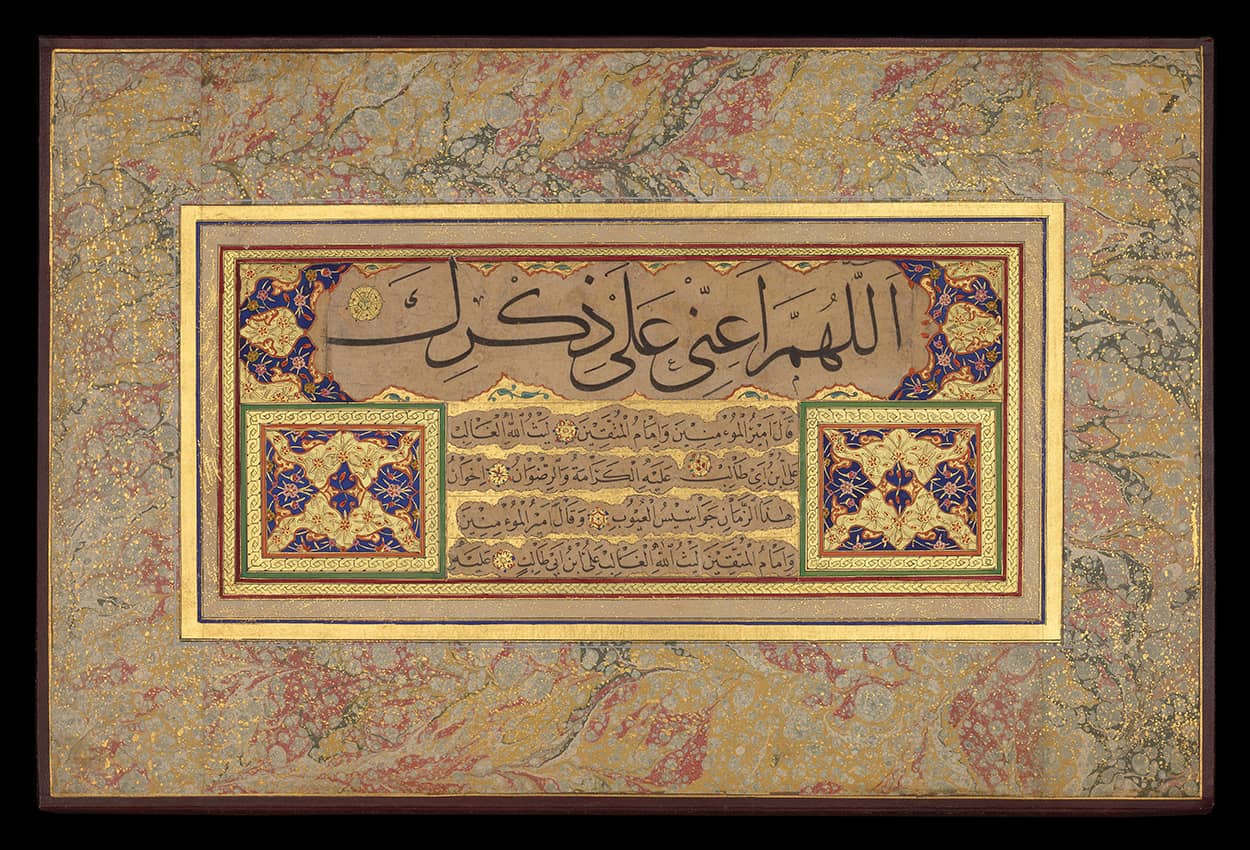 اللهُمَّ اَعِنّى عَلى ذِكْرِكَ
قال امير المؤمنين وامام المتقين ليث الله الغالب
على ابن ابى طالب عليه الكرامة والرضوان اخوان
هذا الزمان جواسيس العيوب وقال امير المؤمنين
وامام المتقين ليث الله الغالب على ابن ابى طالب